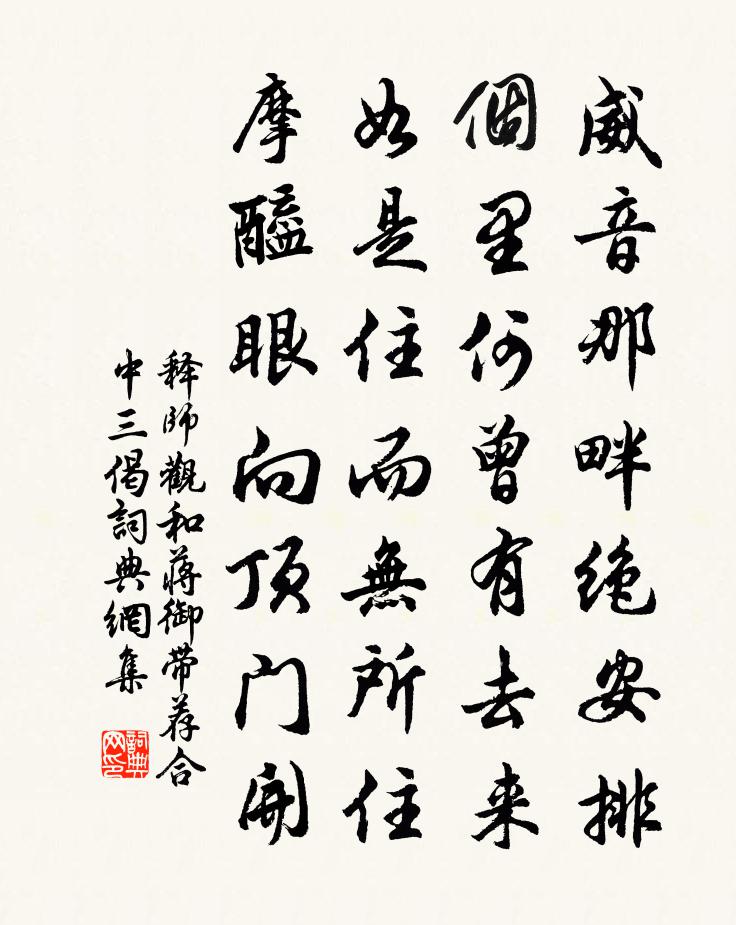 威音那畔绝安排
個里何曾有去来
如是住而無所住
摩醯眼向頂门開
释师觀和蒋御带荐合
中三偈詞典網集
詞典网印